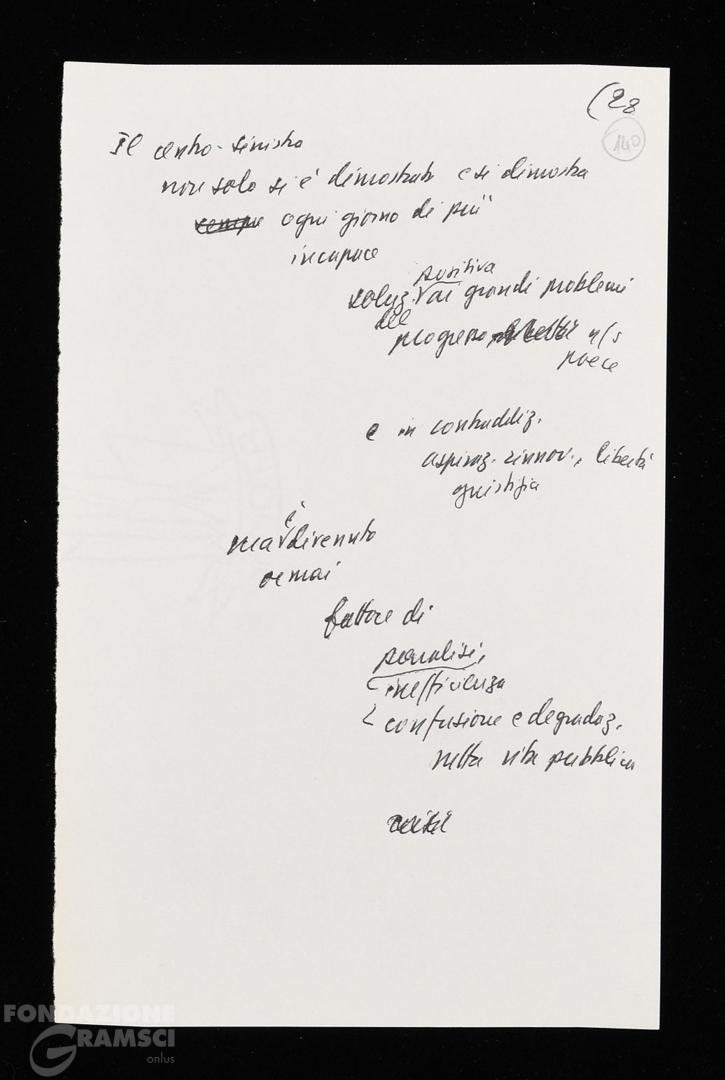 (28
140
Il centro-sinistra
non solo si è dimostrato e si dimostra
sempre ogni giorno di più
incapace
positiva
soluz. ai grandi problemi
del
progresso n/s
paese
e in contraddiz.
aspiraz. rinnov., libertà
giustizia
è
ma divenuto
ormai
fattore di
paralisi,
inefficienza
confusione e degradaz.
nella vita pubblica
crisi
FONDAZIONE
GRAMSCI
onlus